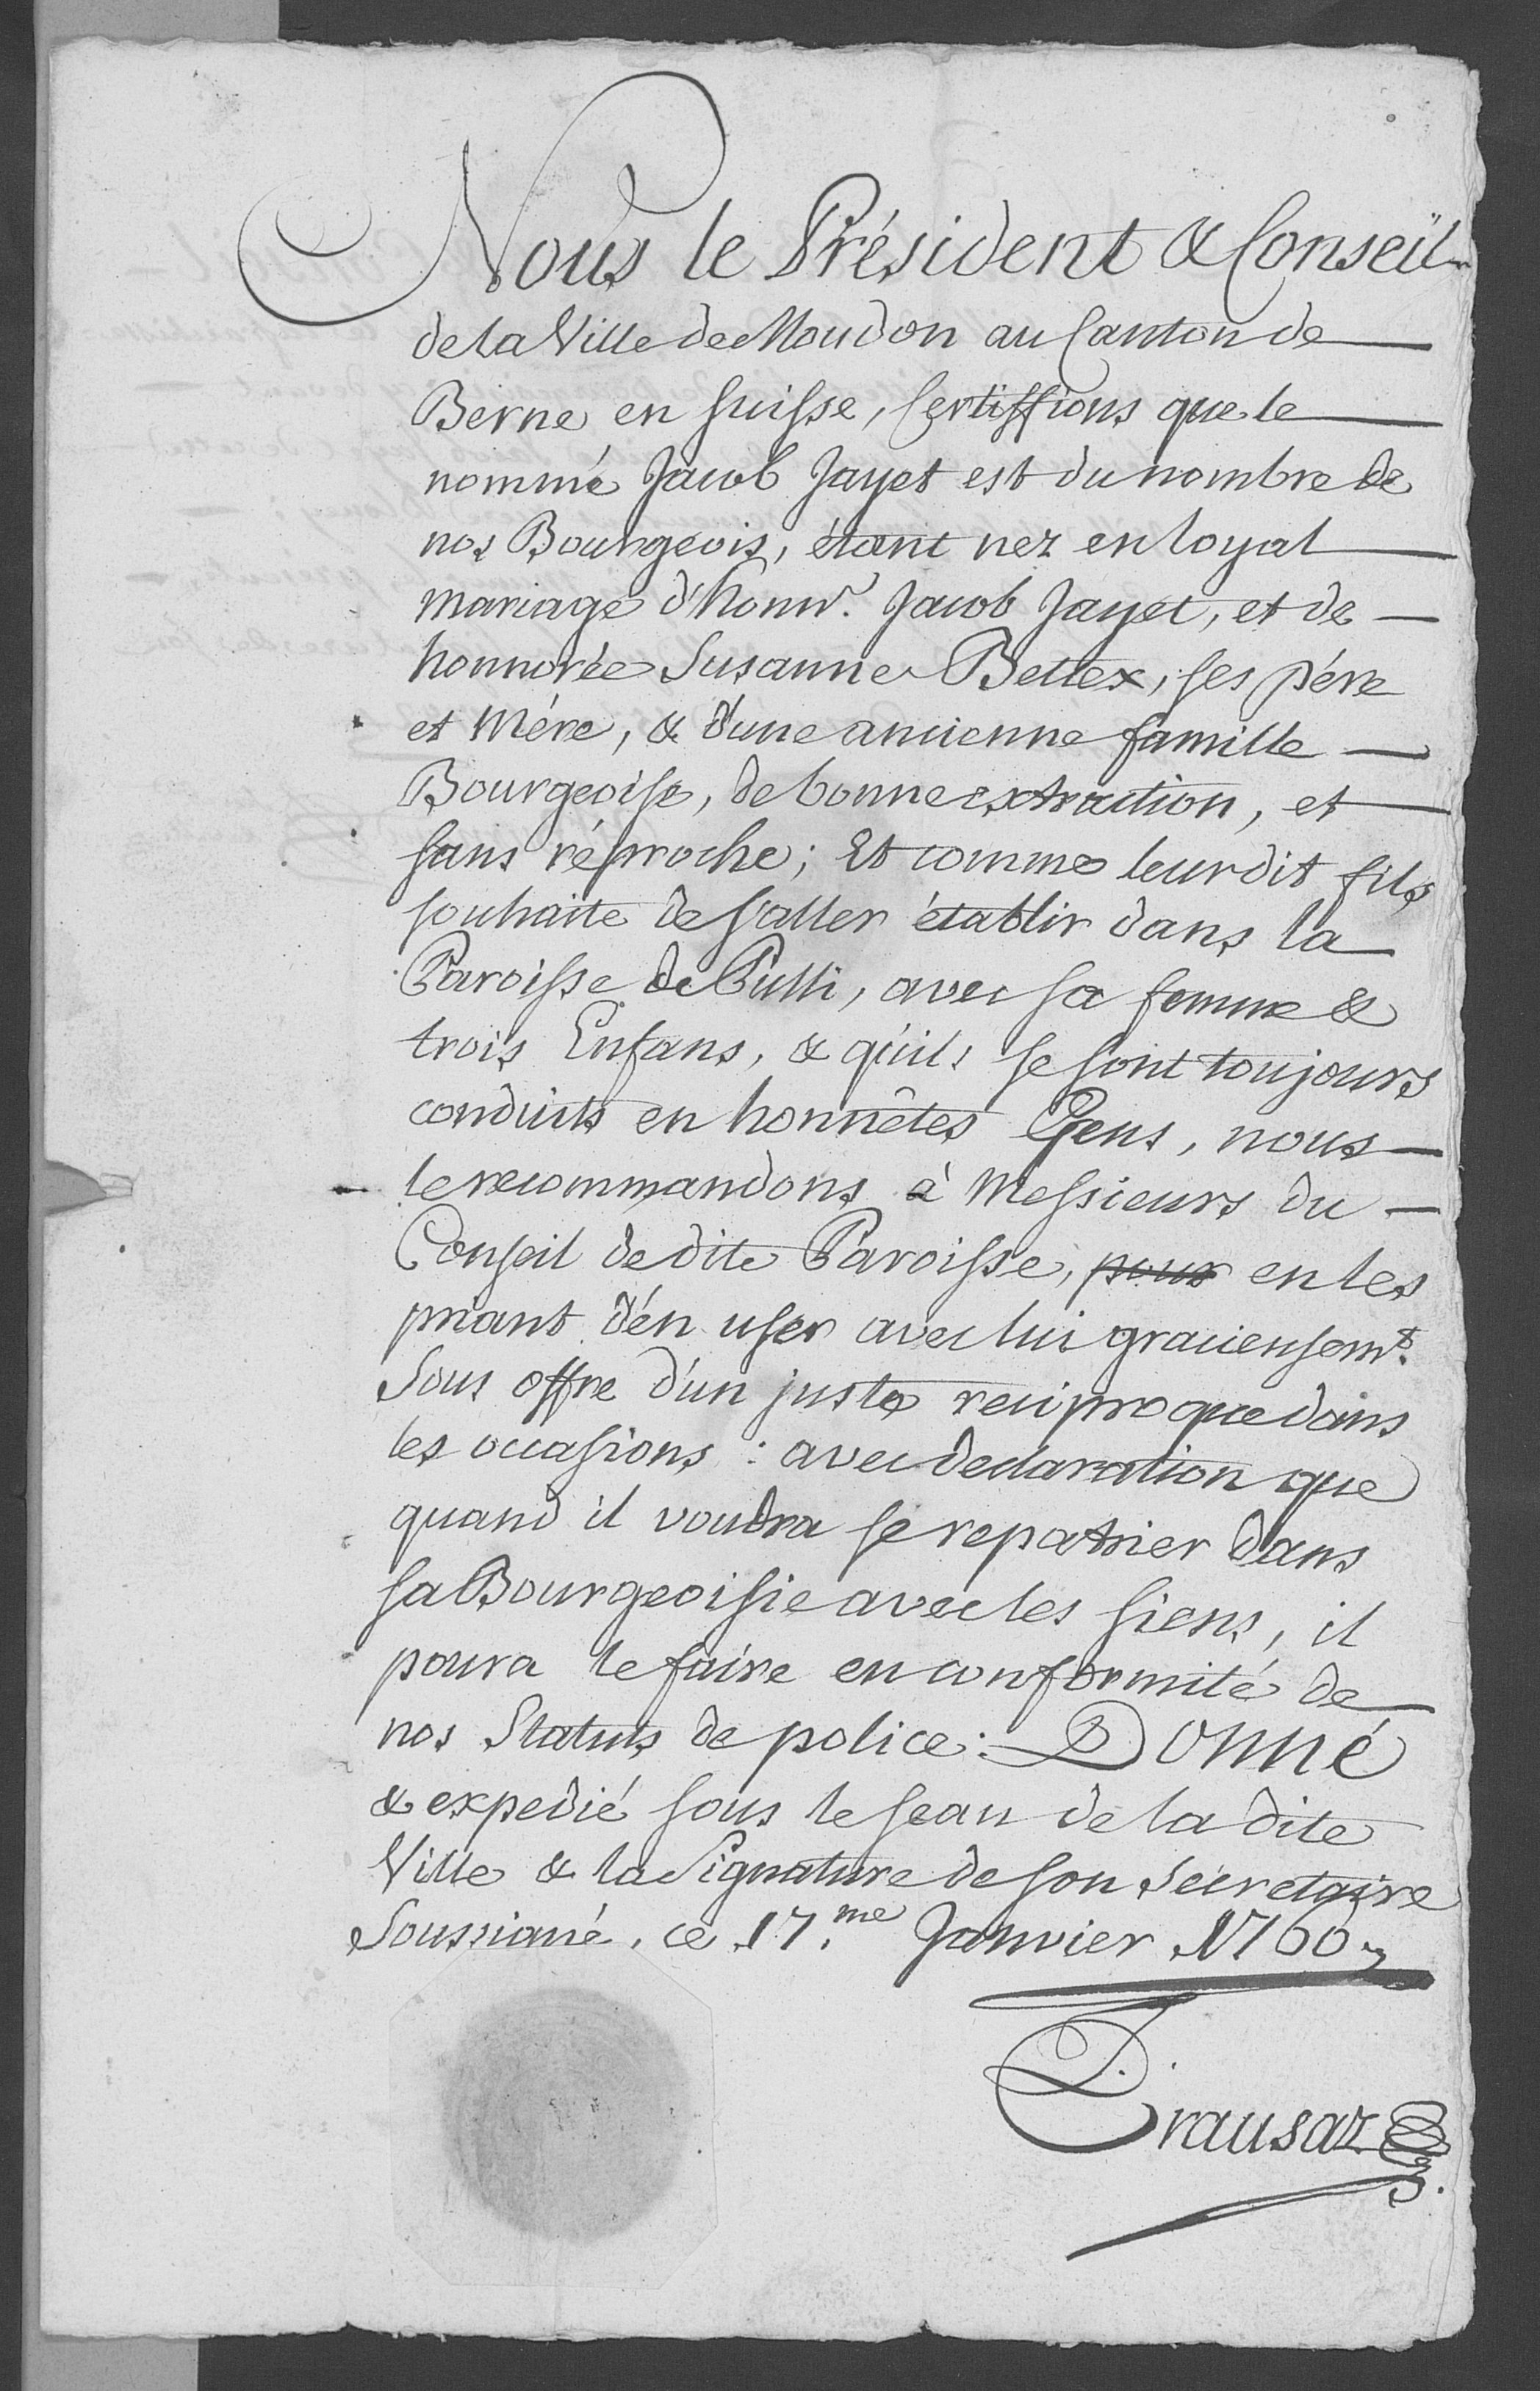 Nous le Président & Conseil
de la Ville de Moudon au Canton de
Berne en Suisse, Certiffions que le
nommé Jacob Jayet est du nombre de
nos Bourgeois, étant nez en loyal
mariage d'honn.^r Jacob Jayet, et de
honnorée Susanne Bettex, ses pére
et Mére, & d'une ancienne famille
Bourgeoise, de bonne extraction, et
sans réproche; Et comme leurdit fils
souhaite de s'aller établir dans la
Paroisse de Pulli, avec sa femme &
trois Enfans, & qu'ils se sont toujours
conduits en honnêtes Gens, nous
le recommandons à Messieurs du
Conseil de dite Paroisse, pour en les
priant d'en user avec lui gracieusem.^t
Sous offre d'un juste reciproque dans
les occasions : avec declaration que
quand il voudra se repatrier dans
sa Bourgeoisie avec les siens, il
poura le faire en conformité de
nos Statuts de police : Donné
& expedié sous le seau de la dite
Ville & la Signature de son Secretaire
Soussigné, ce 17.^me Janvier 1760
Trausaz